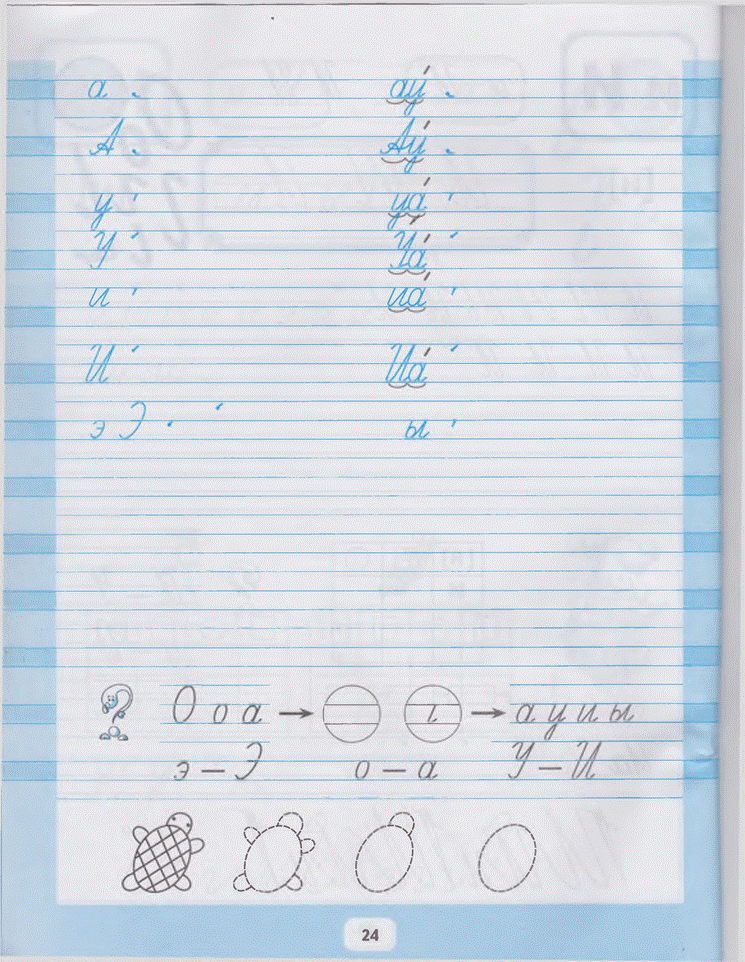 а ау́
А Ау́
у уа́
У Уа́
и иа́
И Иа́
э Э ы
О о а → → а у и ы
э – Э о – а У – И
24